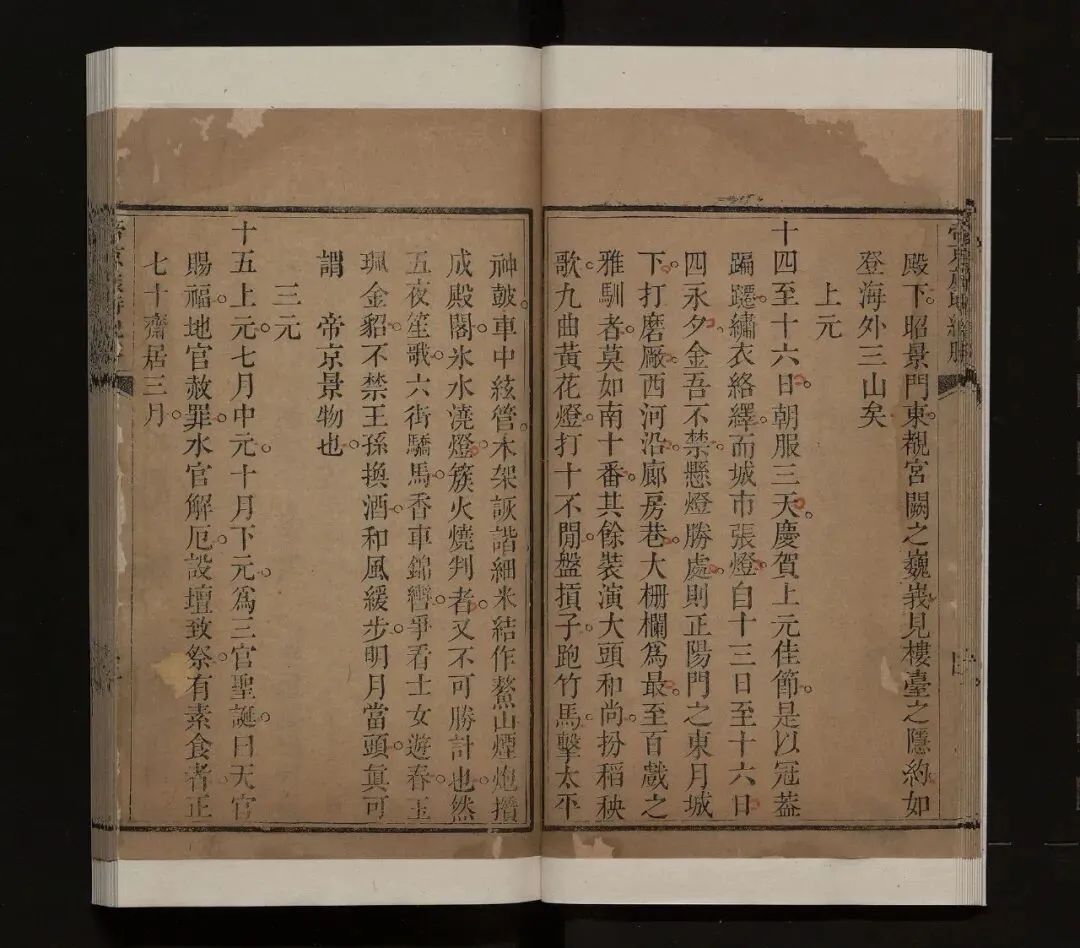 殿下昭景門東觀宮闕之巍峩見樓臺之隱約如
登海外三山矣
上元
十四至十六日朝服三天慶賀上元佳節是以冠蓋
蹁躚繡衣絡繹而城市張燈自十三日至十六日
四永夕金吾不禁懸燈勝處則正陽門之東月城
下打磨廠西河沿廊房巷大栅欄爲最至百戲之
雅馴者莫如南十番其餘裝演大頭和尚扮稻秧
歌九曲黃花燈打十不閒盤摃子跑竹馬擊太平
神皷車中絃管木架詼諧細米結作鰲山煙炮攢
成殿閣氷水澆燈簇火燒判者又不可勝計也然
五夜笙歌六街驕馬香車錦轡爭看士女遊春玉
珮金貂不禁王孫換酒和風緩步明月當頭眞可
謂 帝京景物也
三元
十五上元七月中元十月下元爲三官聖誕曰天官
賜福地官赦罪水官解厄設壇致祭有素食者正
七十齋居三月